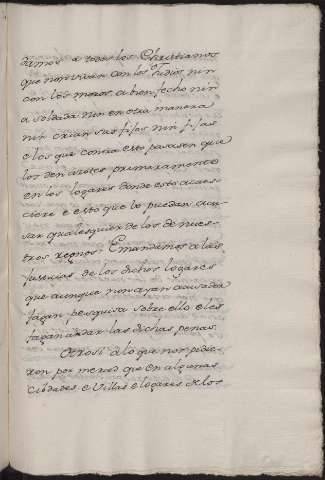 damos a todos los Christianos
que non vivan con los Judios nin
con los moros a bien fecho nin
a soldada nin en otra manera
nin crian sus fijos nin fijas
e los que contra esto pasasen que
los den azotes primeramente
en los logares donde esto acaes-
ciere e esto que lo puedan acu-
sar qualesquier de los de nues-
tros regnos. E mandamos a las
Justicias de los dichos logares
que aunque non ayan acusador
fagan pesquisa sobre ello e les
fagan andar las dichas penas.
Otrosi a lo que nos pidie-
ron por merced que en algunas
Cibdades e Villas e logares de los